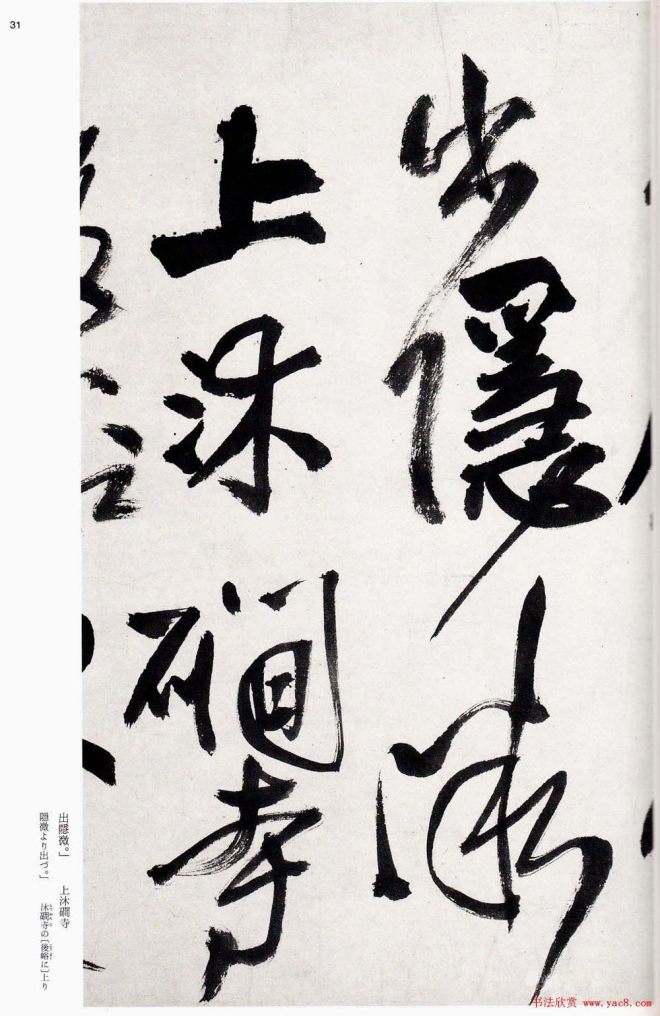 31
出隱微
上沐磵寺
出隱微。」　上沐磵寺
隱微より出づ。」　沐磵寺の〔後峪に〕上り
书法欣赏 www.yac8.com